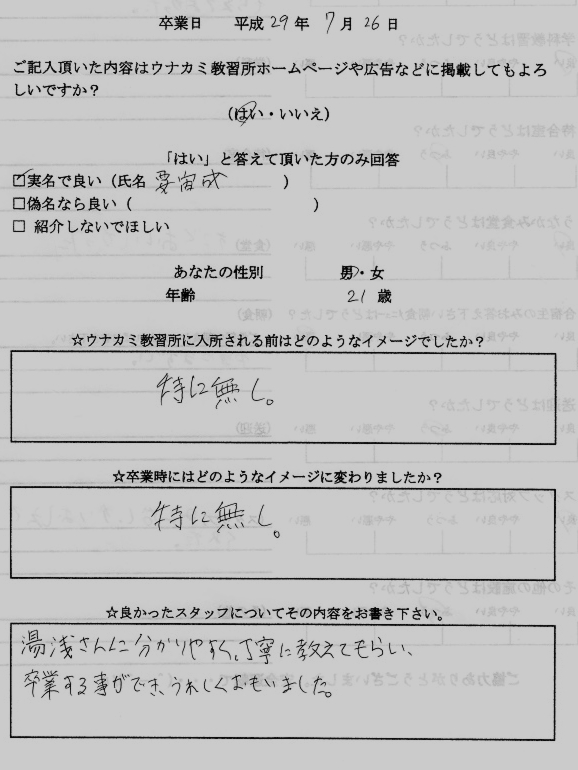 卒業日 平成29年 7月26日
ご記入頂いた内容はウナカミ教習所ホームページや広告などに掲載してもよろ
しいですか？
（はい・いいえ）
「はい」と答えて頂いた方のみ回答
☑実名で良い（氏名 ）
□偽名なら良い（ ）
□ 紹介しないでほしい
あなたの性別 男・女
年齢 21 歳
☆ウナカミ教習所に入所される前はどのようなイメージでしたか？
特に無し。
☆卒業時にはどのようなイメージに変わりましたか？
特に無し。
☆良かったスタッフについてその内容をお書き下さい。
湯浅さんに分かりやすく、丁寧に教えてもらい、
卒業する事ができ、うれしくおもいました。